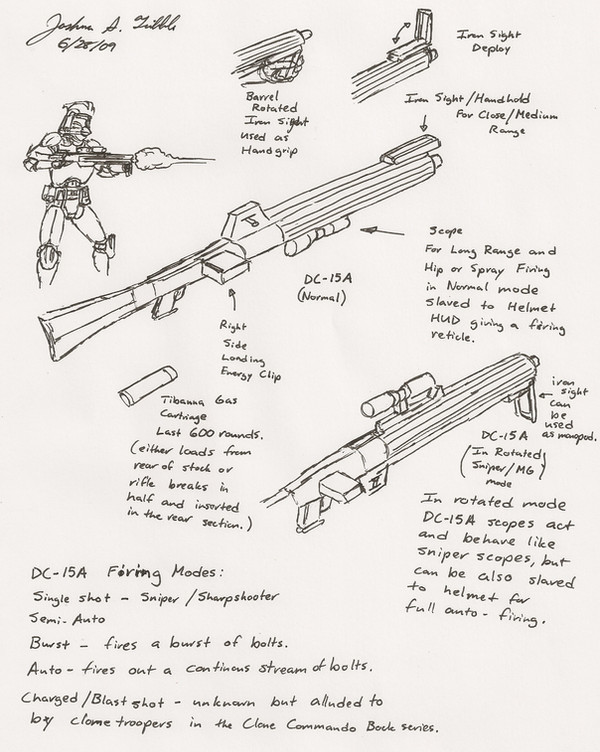 Joshua A. Tribble
6/28/09
Barrel
Rotated
Iron Sight
used as
Handgrip
Iron Sight
Deploy
Iron Sight/Handhold
For Close/Medium
Range
Scope
For Long Range and
Hip or Spray Firing
in Normal mode
slaved to Helmet
HUD giving a firing
reticle.
DC-15A
(Normal)
Right
Side
Loading
Energy Clip
Tibanna Gas
Cartrige
Last 600 rounds.
(either loads from
rear of stock or
rifle breaks in
half and inserted
in the rear section.)
iron
sight
can
be
used
as monopod.
DC-15A
(In Rotated
Sniper/MG)
mode
II
In rotated mode
DC-15A scopes act
and behave like
sniper scopes, but
can be also slaved
to helmet for
full auto-firing.
DC-15A Firing Modes:
Single shot - Sniper/Sharpshooter
Semi-Auto
Burst - fires a burst of bolts.
Auto - fires out a continous stream of bolts.
Charged/Blast shot - unknown but alluded to
by clone troopers in the Clone Commando Book series.